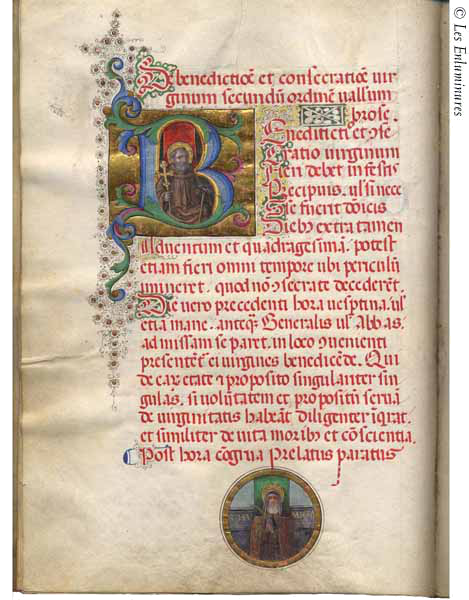 De benedictiōe et consecratiōe uir
ginum secundū ordinē uallum
brose.
Enedictio et ꝯse
cratio uirginum
fieri debet in festis
precipuis. ul si nece
sse fuerit dōicis
Diebꝰ extra tamen
aduentum et quadragesimā. potest
etiam fieri omni tempore ubi periculū
immineret. quod nō ꝯsecrate decederēt.
Die uero precedenti hora uesptina. ul
etiā mane. anteqꝫ Generalis ul Abbas.
ad missam se paret. in loco ꝯuenienti
presentēt ei uirgines benedicēde. Qui
de eaꝝ etate ⁊ proposito singulariter sin
gulas. si uoluntatem et propositū serua
de uirginitatis habeāt diligenter īqrat.
et similiter de uita moribꝰ et cōscientia.
Post hora cōgrua prelatus paratus
© Les Enluminures